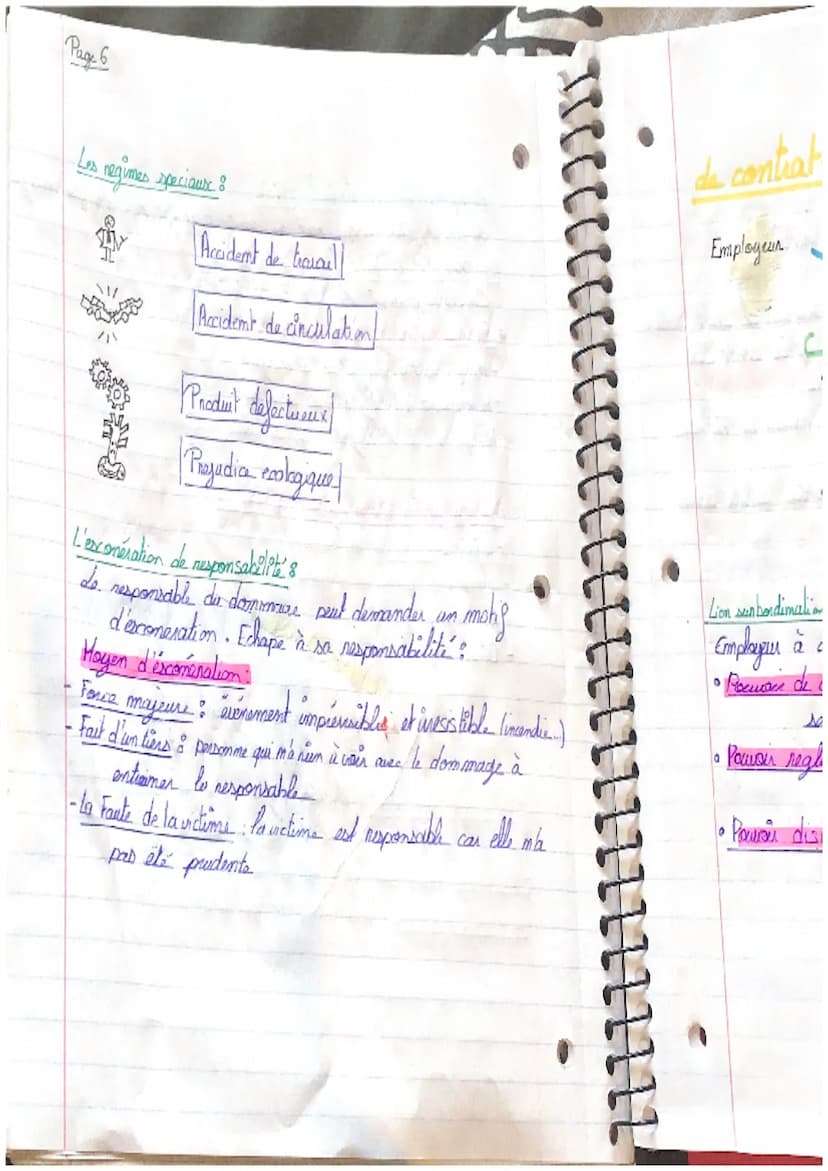 Page 6
Les regimes speciaux :
Accident de travail
Accident de circulation
Produit defectueux
Prejudice ecologique
L'exonération de responsabilité :
Le responsable du dommage peut demander un motif
d'exoneration. Echape à sa responsabilité :
Moyen d'exonération:
- Force majeure : évenement imprévisible et irresistible (incendie...)
- Fait d'un tiers : personne qui n'a rien à voir avec le dommage à
entrainer le responsable
- La Faute de la victime : la victime est responsable car elle n'a
pas été prudente
de contrat
Employeur
C
Lien subordination
Employeur à
• Pouvoir de
• Pouvoir regle
• Pouvoir dis